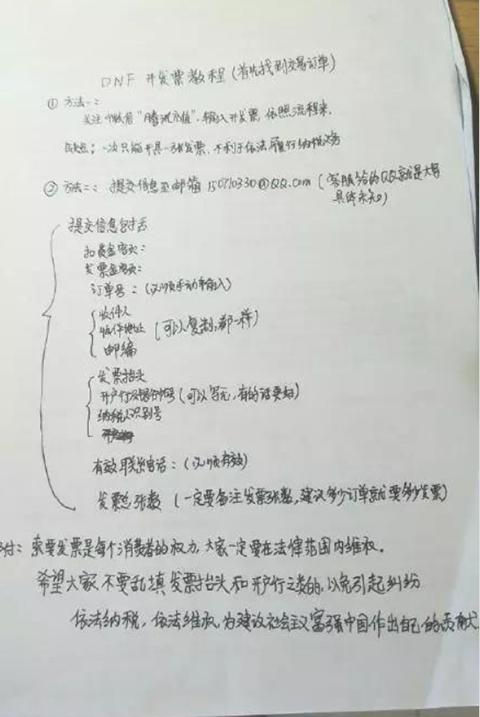 DNF 开发票教程(首先找到交易订单)
① 方法一:
关注微信"腾讯充值",输入开发票,依照流程来.
缺点:一次只能开具一张发票,不利于依法履行纳税义务
② 方法二:提交信息至邮箱 15010330@QQ.com (客服给的QQ就是大写
具体未知)
提交信息包括
扣费金额:
发票金额:
订单号:(必须手动输入)
收件人
收件地址 (可以复制,都一样)
邮编
发票抬头
开户行及银行帐号(可以写无,有的话要如)
纳税人识别号
有效联系电话:(必须有效)
发票总张数(一定要备注发票张数,建议多少订单就要多少发票)
附:索要发票是每个消费者的权力,大家一定要在法律范围内维权.
希望大家不要乱填发票抬头和开户行之类的,以免引起纠纷
依法纳税,依法维权,为建设社会主义富强中国作出自己的贡献